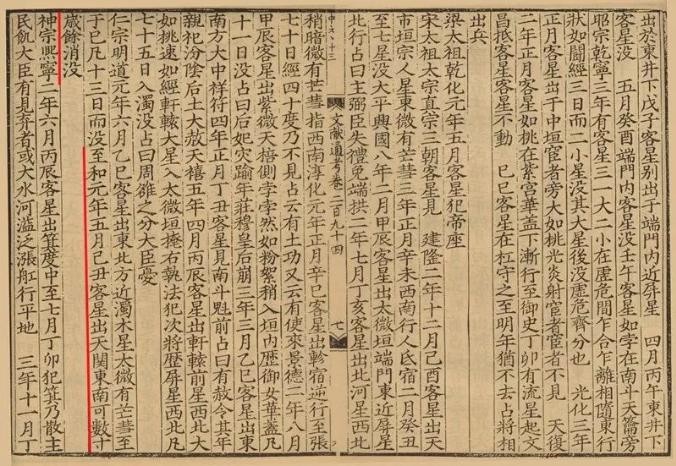 出於東井下戊子客星別出于端門內近屏星 四月丙午東井下
客星沒 五月癸酉端門內客星沒壬午客星如孛在南斗天籥旁
昭宗乾寧三年有客星三一大二小在虛危間乍合乍離相隨東行
狀如鬭經三日而二小星沒其大星後沒虛危齊分也 光化三年
正月客星出于中垣宦者旁大如桃光炎射宦者宦者不見 天復
二年正月客星如桃在紫宮華蓋下漸行至御史丁卯有流星起文
昌抵客星客星不動 己巳客星在杠守之至明年猶不去占將相
出兵
梁太祖乾化元年五月客星犯帝座
宋太祖太宗真宗三朝客星見 建隆二年十二月己酉客星出天
市垣宗人星東微有芒彗三年正月辛未西南行入氐宿二月癸丑
至七星沒太平興國八年二月甲辰客星出太微垣端門東近屏星
北行占曰主弼臣失禮免端拱二年七月丁亥客星出北河星西北
文獻通考卷二百九十四
七
稍暗微有芒彗指西南淳化元年正月辛巳客星出軫宿逆行至張
七十日經四十度乃不見占云有土功又云有使來景德二年八月
甲辰客星出紫微天棓側孛孛然如粉絮稍入垣內歷御女華蓋凡
十一日沒占曰后妃災踰年莊穆皇后崩三年三月乙巳客星出東
南方大中祥符四年正月丁丑客星見南斗魁前占曰有赦令其年
親祀汾陰后土大赦天禧五年四月丙辰客星出軒轅前星西北大
如桃速如經軒轅大星入太微垣掩右執法犯次將歷屏星西北凡
七十五日入濁沒占曰周雍之分大臣憂
仁宗明道元年六月乙巳客星出東北方近濁木星太微有芒彗至
丁巳凡十三日而沒至和元年五月己丑客星出天關東南可數寸
歲餘消沒
神宗熙寧二年六月丙辰客星出箕度中至七月丁卯犯箕乃散主
民飢大臣有見棄者或大水河溢泛漲舡行平地 三年十一月丁